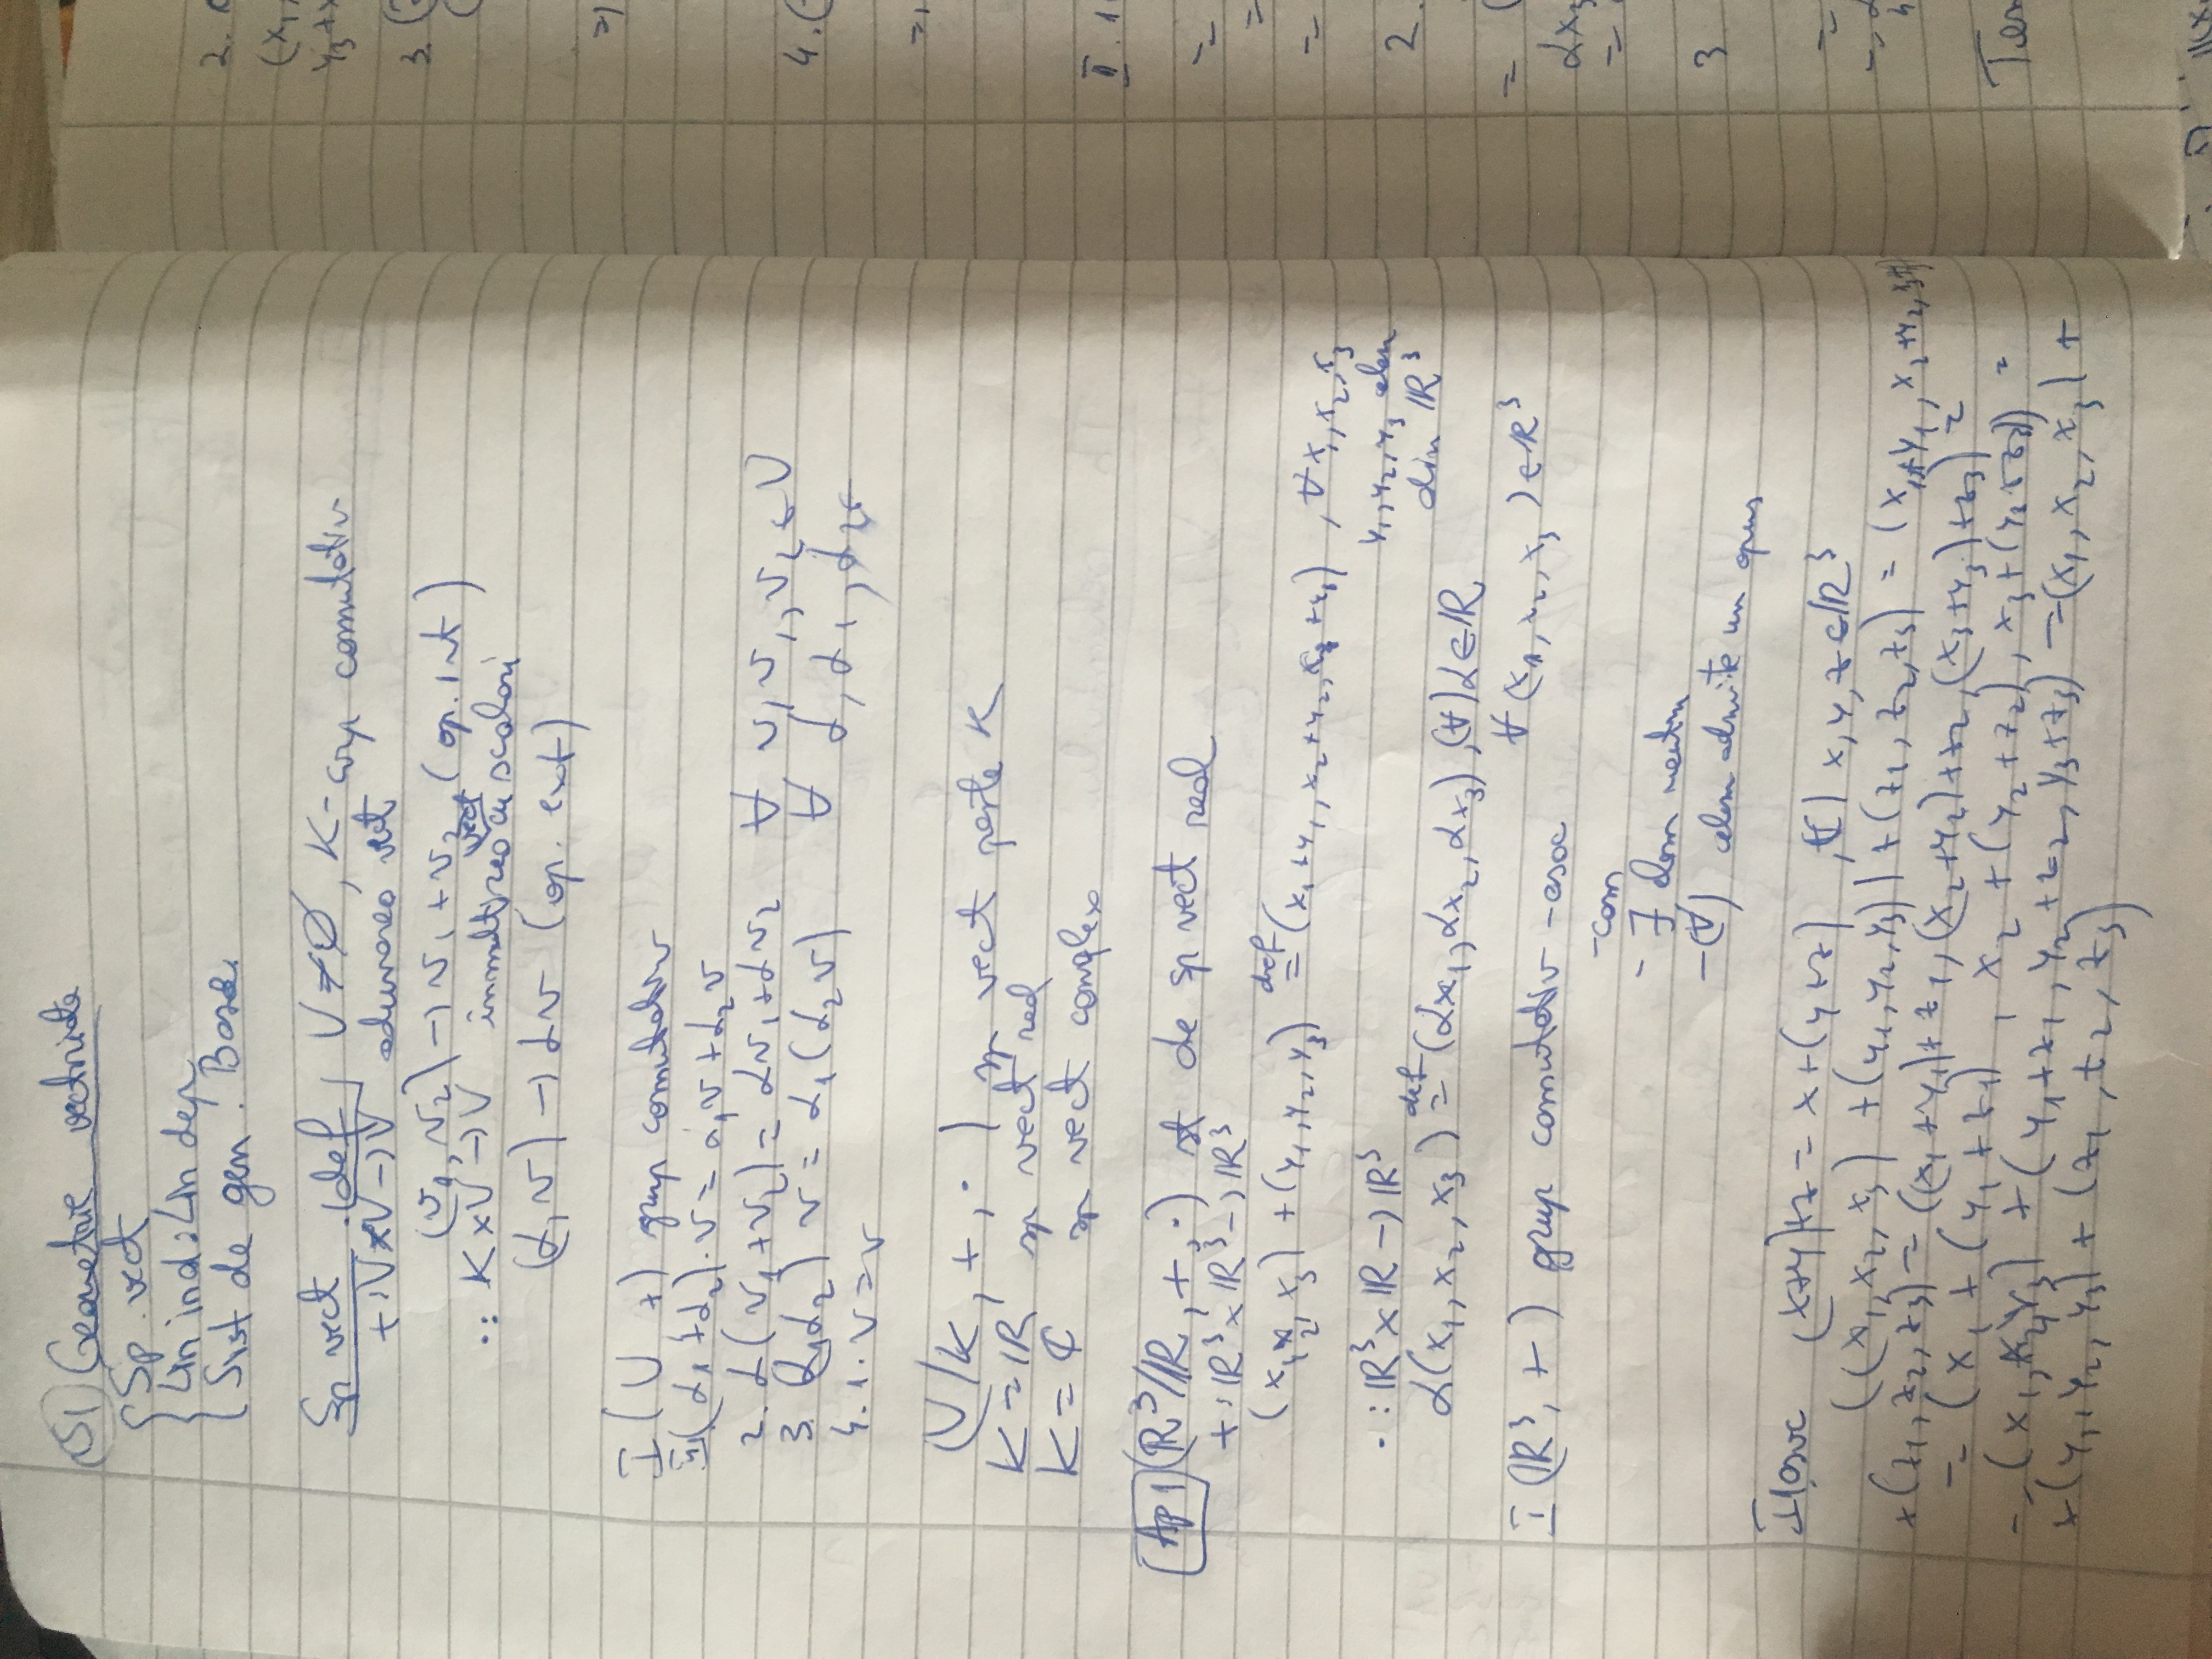 S1 Geometrie vectoriala
Sp. vect
Lin ind. Lin dep
Sist de gen. Baze.
Sp vect (def) V≠∅, K- corp comutativ
+: V×V→V adunarea vect
(v₁, v₂)→v₁+v₂ (op. int)
·: K×V→V inmultirea vect cu scalari
(α, v)→αv (op. ext)
I (V, +) grup comutativ
II 1 (α₁+α₂)·v = α₁v+α₂v
2. α(v₁+v₂)= αv₁+αv₂ ∀ v, v₁, v₂∈V
3. (α₁α₂) v = α₁(α₂v) ∀ α, α₁, α₂∈
4. 1·v=v
(V/K, +, ·) sp vect peste K
K=ℝ sp vect real
K=ℂ sp vect complex
Ap 1 (ℝ³/ℝ, +, ·) st de sp vect real
+: ℝ³×ℝ³→ℝ³
(x₁, x₂, x₃) + (y₁, y₂, y₃) def= (x₁+y₁, x₂+y₂, x₃+y₃), ∀ x₁, x₂, x₃
y₁, y₂, y₃ elem
din ℝ³
·: ℝ³×ℝ→ℝ³
α(x₁, x₂, x₃) def= (αx₁, αx₂, αx₃), (∀)α∈ℝ
∀ (x₁, x₂, x₃)∈ℝ³
I (ℝ³, +) grup comutativ -asoc
-com
- ∃ elem neutru
-(∀) elem admite un opus
I 1 asoc (x+y)+z = x+(y+z), (∀) x, y, z∈ℝ³
((x₁, x₂, x₃) +(y₁, y₂, y₃)) + (z₁, z₂, z₃) = (x₁+y₁, x₂+y₂, x₃+y₃)
+(z₁, z₂, z₃)= ((x₁+y₁)+z₁, (x₂+y₂)+z₂, (x₃+y₃)+z₃)=
= (x₁+(y₁+z₁), x₂+(y₂+z₂), x₃+(y₃+z₃)) =
= (x₁, x₂, x₃) + (y₁+z₁, y₂+z₂, y₃+z₃) =(x₁, x₂, x₃) +
+(y₁, y₂, y₃) + (z₁, z₂, z₃)
2.
(x₁,
y₃+x
3.
=)
4.
=)
II. 1
=
=
=
2.
= (
αx₃
=
3
=